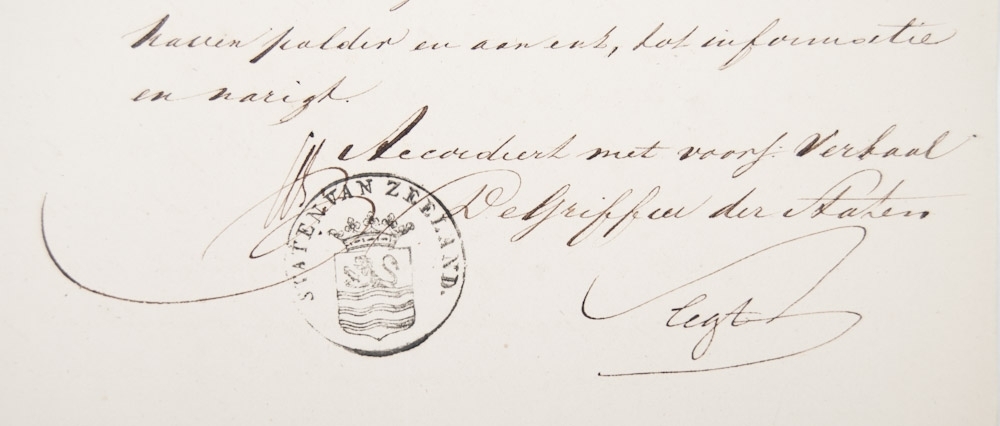 haven polder en aan enz, tot informatie
en narigt.
Accordeert met voorsz: Verbaal
De Griffier der Staten
STATEN VAN ZEELAND.